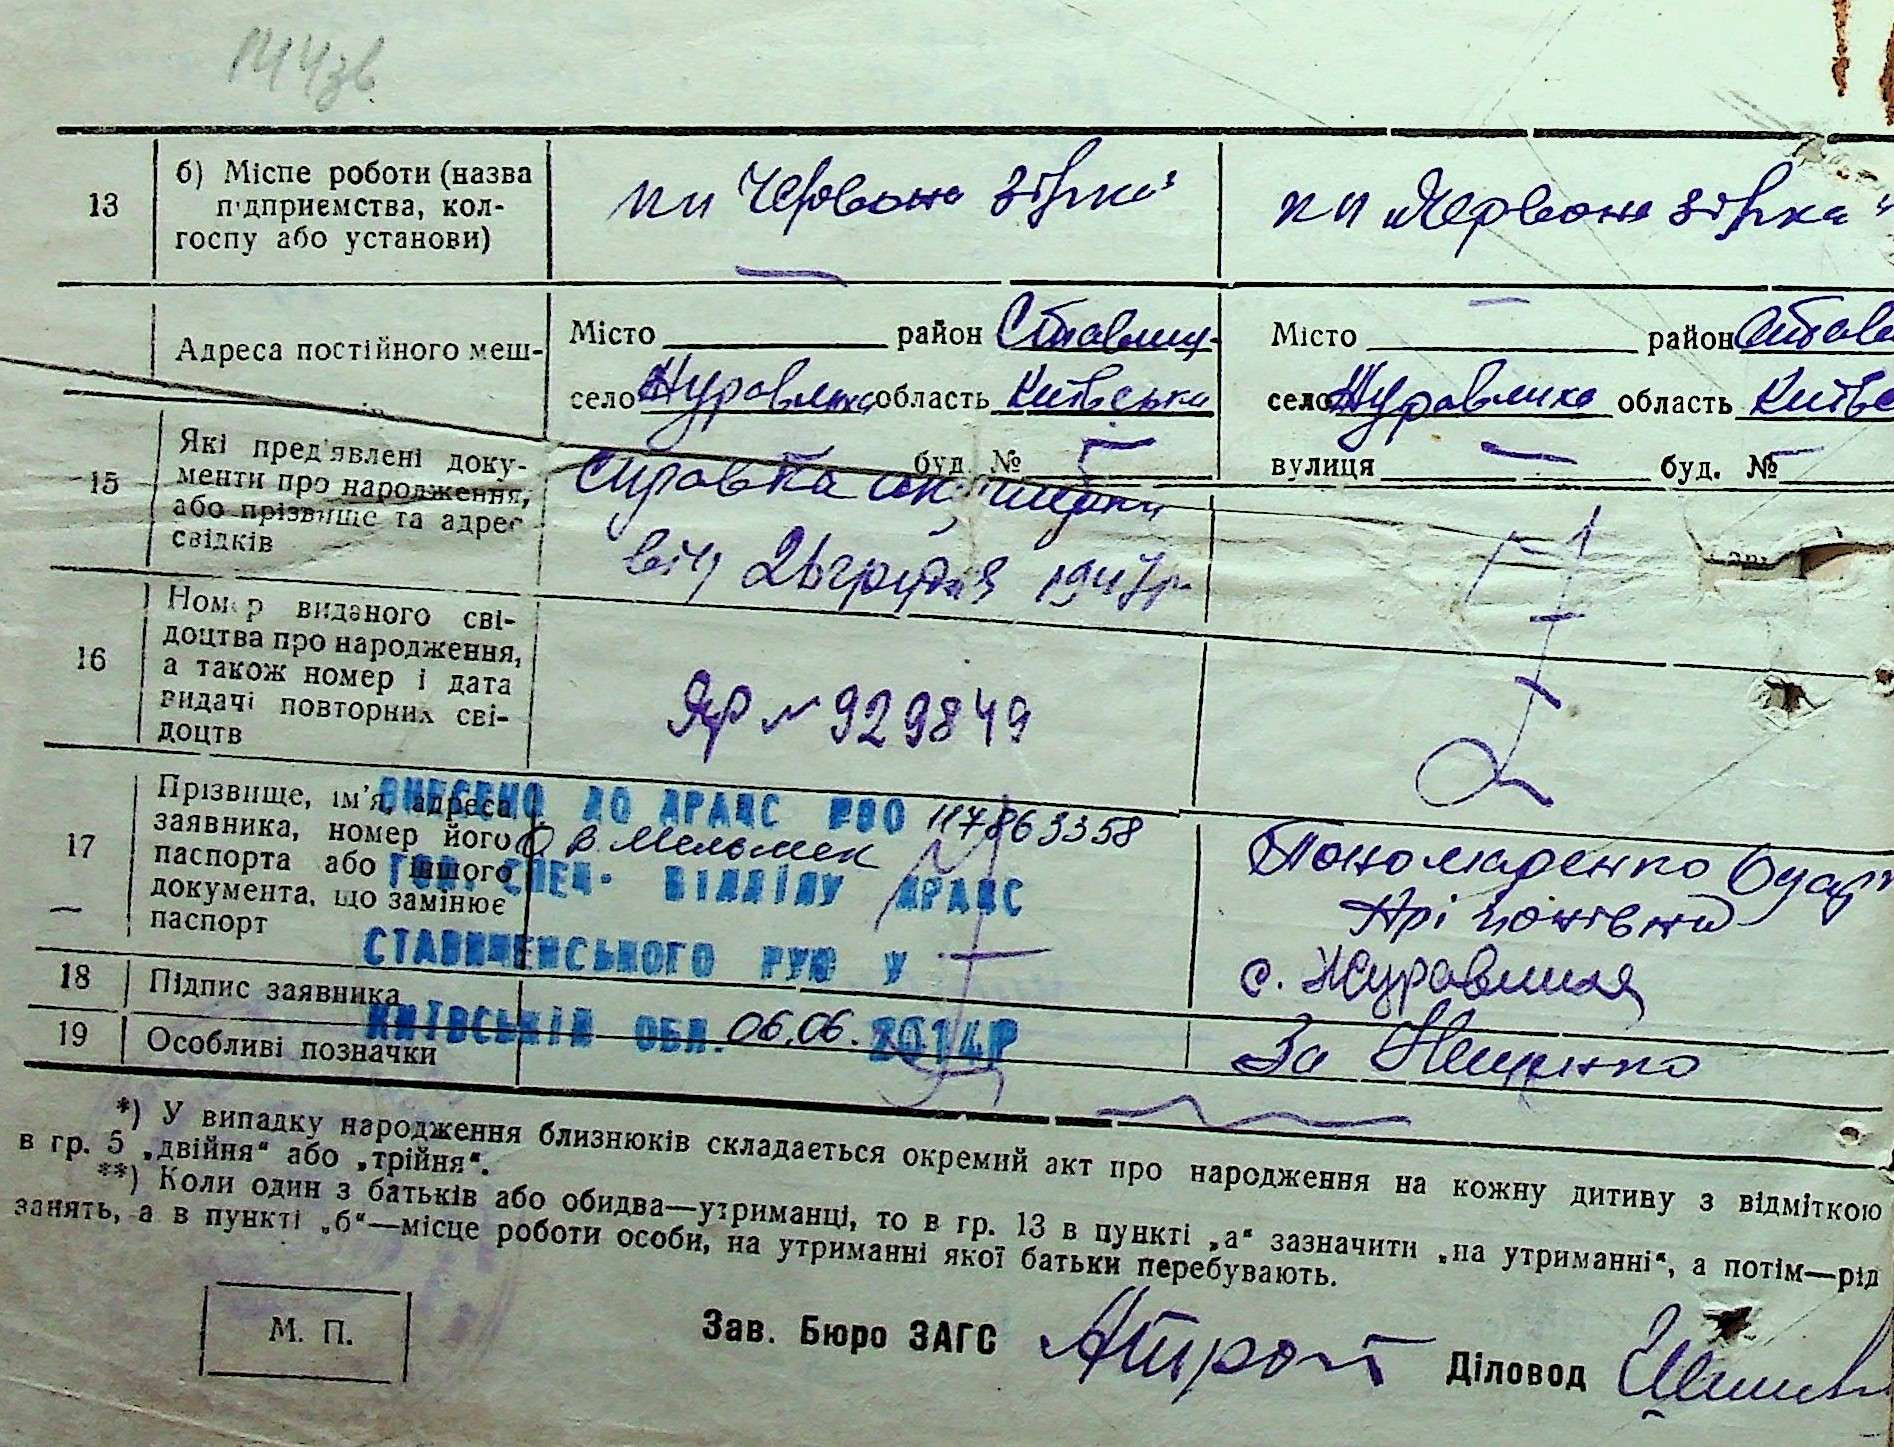 144зв
13
б) Місце роботи (назва
підприємства, кол-
госпу або установи)
Червона зірка"
„Червона зірка"
Адреса постійного меш-
Місто район Ставищ-
село Журавлиха область Київська
буд. №
Місто район Стави
село Журавлиха область Київс
вулиця — буд. №
15
Які пред'явлені доку-
менти про народження,
або прізвище та адрес
свідків
Справка
від 26 грудня 1947р
16
Номер виданого сві-
доцтва про народження,
а також номер і дата
видачі повторних сві-
доцтв
ЯР № 929849
17
Прізвище, ім'я, адреса
заявника, номер його
паспорта або іншого
документа, що замінює
паспорт
ВНЕСЕНО ДО ДРАЦС РВО 117863358
О В Мельник
ГОЛ. СПЕЦ. ВІДДІЛУ ДРАЦС
СТАВИЩЕНСЬКОГО РУЮ У
КИЇВСЬКІЙ ОБЛ. 06.06. 2014Р
Пономаренко
с. Журавлиха
18
Підпис заявника
19
Особливі позначки
За
*) У випадку народження близнюків складається окремий акт про народження на кожну дитину з відміткою
в гр. 5 „двійня" або „трійня".
**) Коли один з батьків або обидва—утриманці, то в гр. 13 в пункті „а" зазначити „на утриманні", а потім—рід
занять, а в пункті „б"—місце роботи особи, на утриманні якої батьки перебувають.
М. П.
Зав. Бюро ЗАГС
Діловод